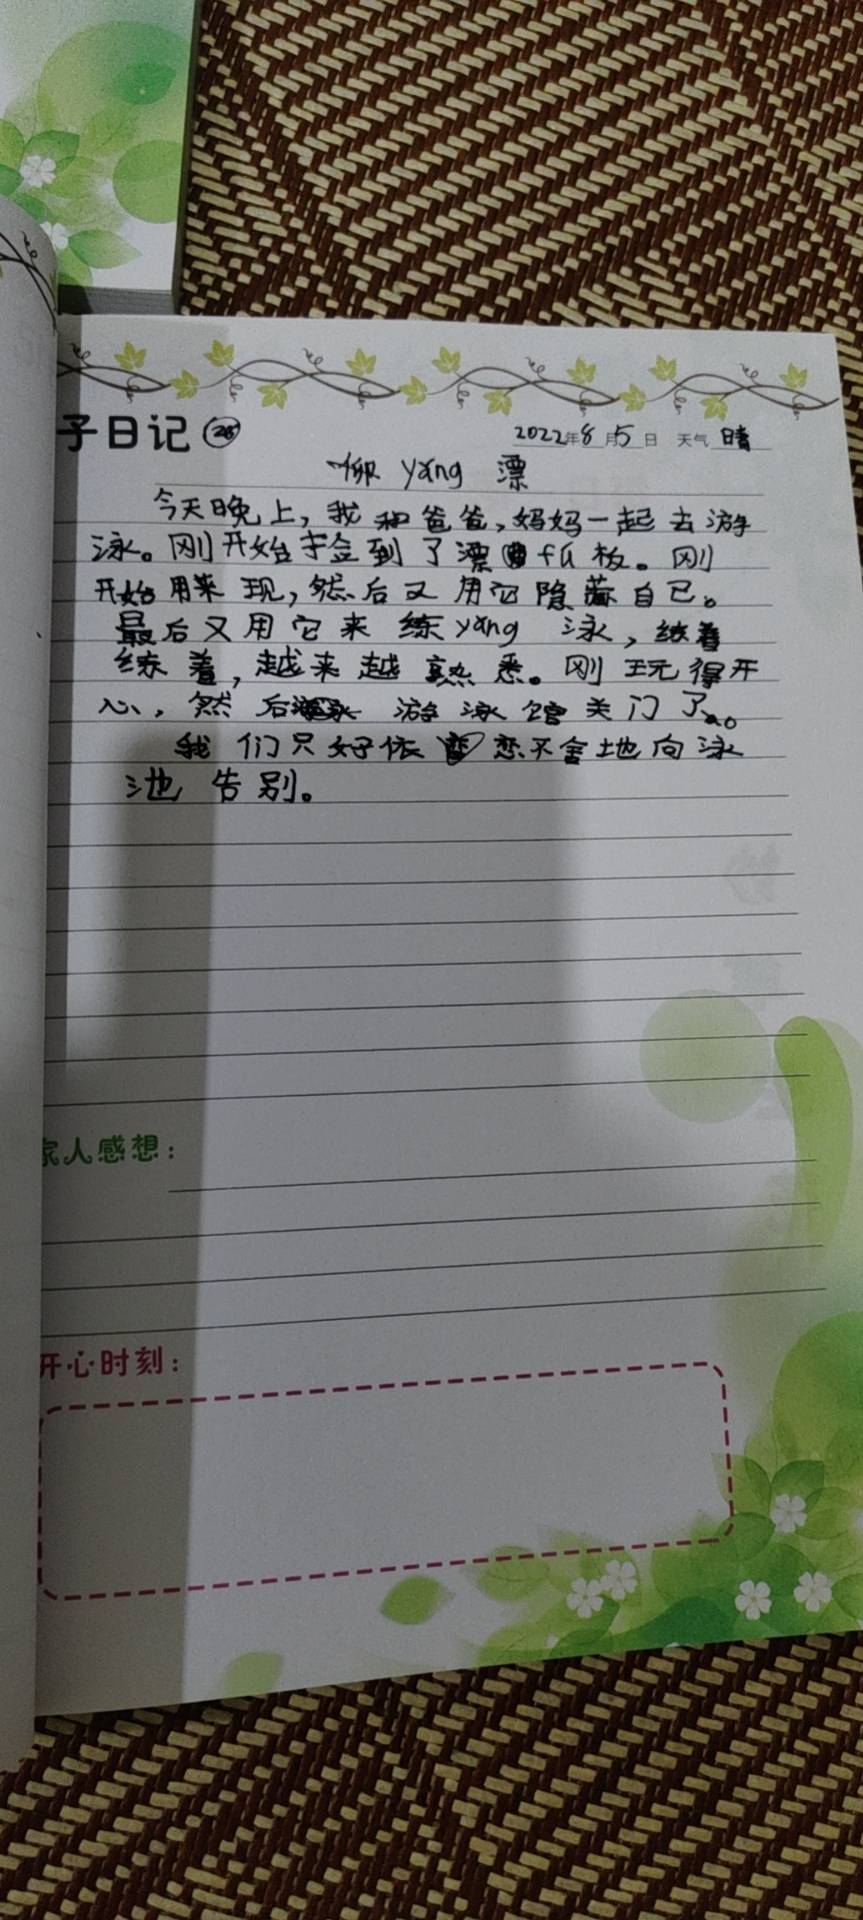 子日记 28 2022年8月5日 天气 晴
仰 yǎng 漂
今天晚上，我和爸爸，妈妈一起去游
泳。刚开始学会到了漂 板。刚
开始用来 现，然后又用它隐藏自己。
最后又用它来练yǎng 泳，练着
练着，越来越熟悉。刚玩得开
心，然后 游泳馆关门了。
我们只好依 恋不舍地向泳
池告别。
家人感想：
开心时刻：